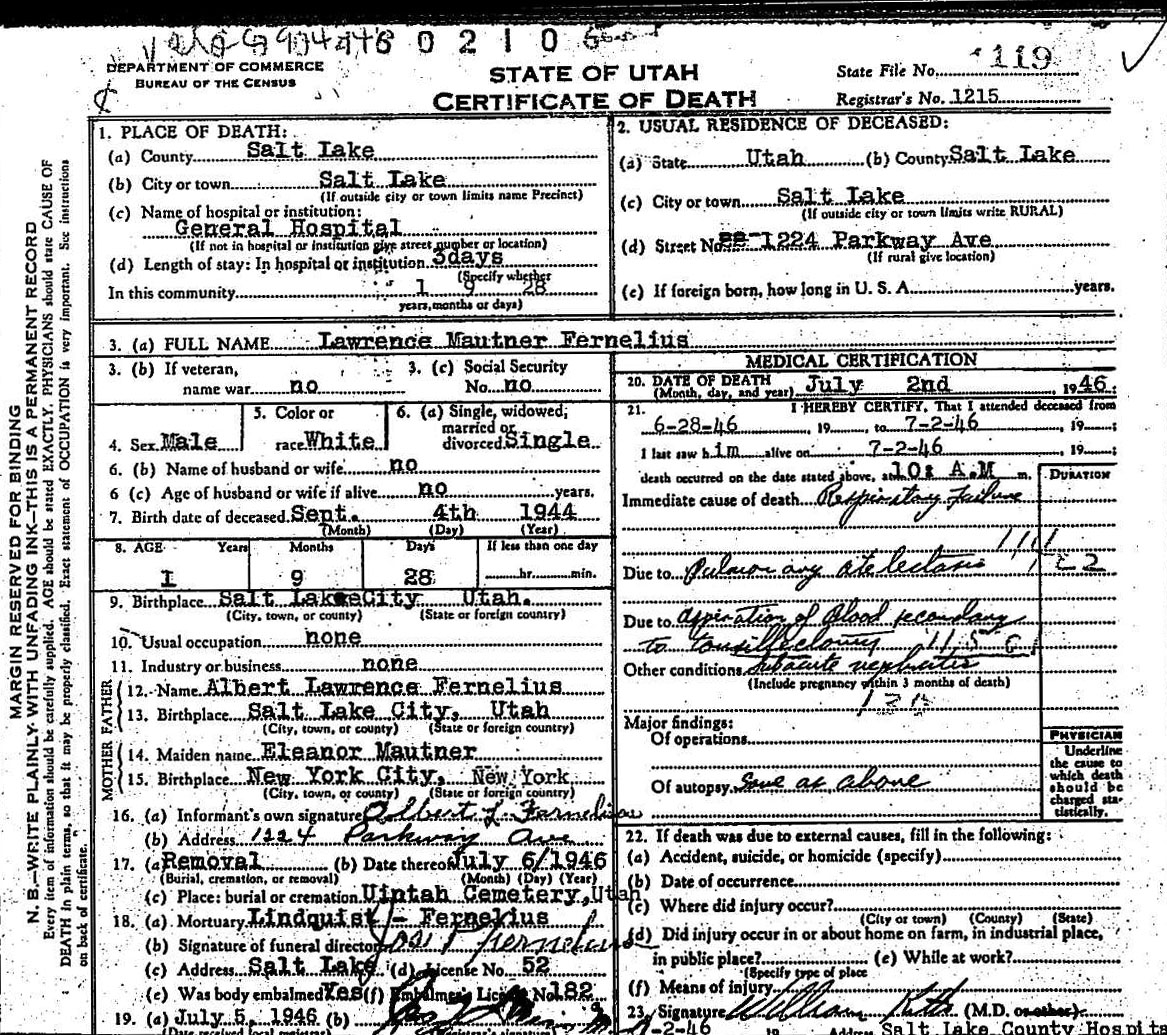 0 2 1 0
DEPARTMENT OF COMMERCE
BUREAU OF THE CENSUS
STATE OF UTAH
CERTIFICATE OF DEATH
State File No. 119
Registrar's No. 1215
MARGIN RESERVED FOR BINDING
N. B.—WRITE PLAINLY WITH UNFADING INK—THIS IS A PERMANENT RECORD
Every item of information should be carefully supplied. AGE should be stated EXACTLY. PHYSICIANS should state CAUSE OF
DEATH in plain terms, so that it may be properly classified. Exact statement of OCCUPATION is very important. See instructions
on back of certificate.
1. PLACE OF DEATH:
(a) County Salt Lake
(b) City or town Salt Lake
(If outside city or town limits name Precinct)
(c) Name of hospital or institution:
General Hospital
(If not in hospital or institution give street number or location)
(d) Length of stay: In hospital or institution 3days
(Specify whether
In this community 1 9 28
years, months or days)
2. USUAL RESIDENCE OF DECEASED:
(a) State Utah (b) County Salt Lake
(c) City or town Salt Lake
(If outside city or town limits write RURAL)
(d) Street No. 1224 Parkway Ave
(If rural give location)
(e) If foreign born, how long in U. S. A. years.
3. (a) FULL NAME Lawrence Mautner Fernelius
3. (b) If veteran, 3. (c) Social Security
name war no No. no
5. Color or 6. (a) Single, widowed,
married or
4. Sex Male race White divorced Single
6. (b) Name of husband or wife no
6 (c) Age of husband or wife if alive no years.
7. Birth date of deceased Sept. 4th 1944
(Month) (Day) (Year)
8. AGE Years Months Days If less than one day
1 9 28 hr. min.
9. Birthplace Salt Lake City Utah.
(City, town, or county) (State or foreign country)
10. Usual occupation none
11. Industry or business none
FATHER
12. Name Albert Lawrence Fernelius
13. Birthplace Salt Lake City, Utah
(City, town, or county) (State or foreign country)
MOTHER
14. Maiden name Eleanor Mautner
15. Birthplace New York City, New York
(City, town, or county) (State or foreign country)
16. (a) Informant's own signature Albert L. Fernelius
(b) Address 1224 Parkway Ave
17. (a) Removal (b) Date thereof July 6/1946
(Burial, cremation, or removal) (Month) (Day) (Year)
(c) Place: burial or cremation Uintah Cemetery, Utah
18. (a) Mortuary Lindquist - Fernelius
(b) Signature of funeral director Fernelius
(c) Address Salt Lake (d) License No. 52
(e) Was body embalmed Yes (f) Embalmer's License No. 182
19. (a) July 5, 1946 (b)
(Date received local registrar)
MEDICAL CERTIFICATION
20. DATE OF DEATH July 2nd 1946:
(Month, day, and year)
21. I HEREBY CERTIFY, That I attended deceased from
6-28-46, 19 , to 7-2-46, 19 ;
I last saw him alive on 7-2-46, 19 ;
death occurred on the date stated above, at 10: A.M m. DURATION
Immediate cause of death Respiratory failure
Due to Pulmonary atelectasis
Due to aspiration of blood secondary
to tonsillectomy
Other conditions Subacute nephritis
(Include pregnancy within 3 months of death)
Major findings:
Of operations
Of autopsy Same as above
PHYSICIAN
Underline
the cause to
which death
should be
charged sta-
tistically.
22. If death was due to external causes, fill in the following:
(a) Accident, suicide, or homicide (specify)
(b) Date of occurrence
(c) Where did injury occur?
(City or town) (County) (State)
(d) Did injury occur in or about home on farm, in industrial place,
in public place? (e) While at work?
(Specify type of place
(f) Means of injury
23. Signature William (M.D. or other)
-2-46 19 Address Salt Lake County Hospi